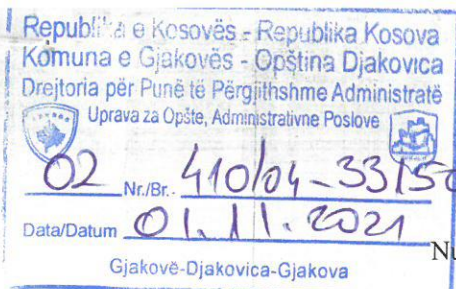 Republika e Kosovës - Republika Kosova
Komuna e Gjakovës - Opština Djakovica
Drejtoria për Punë të Përgjithshme Administratë
Uprava za Opšte, Administrativne Poslove
02 Nr./Br. 410/04-33150
Data/Datum 01.11.2021
Nu
Gjakovë-Djakovica-Gjakova